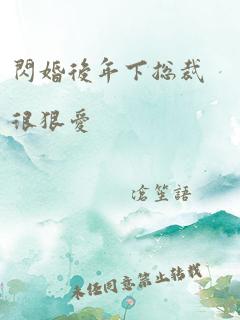 閃婚後年下總裁
很狠愛
滄笙語
未經同意禁止轉載